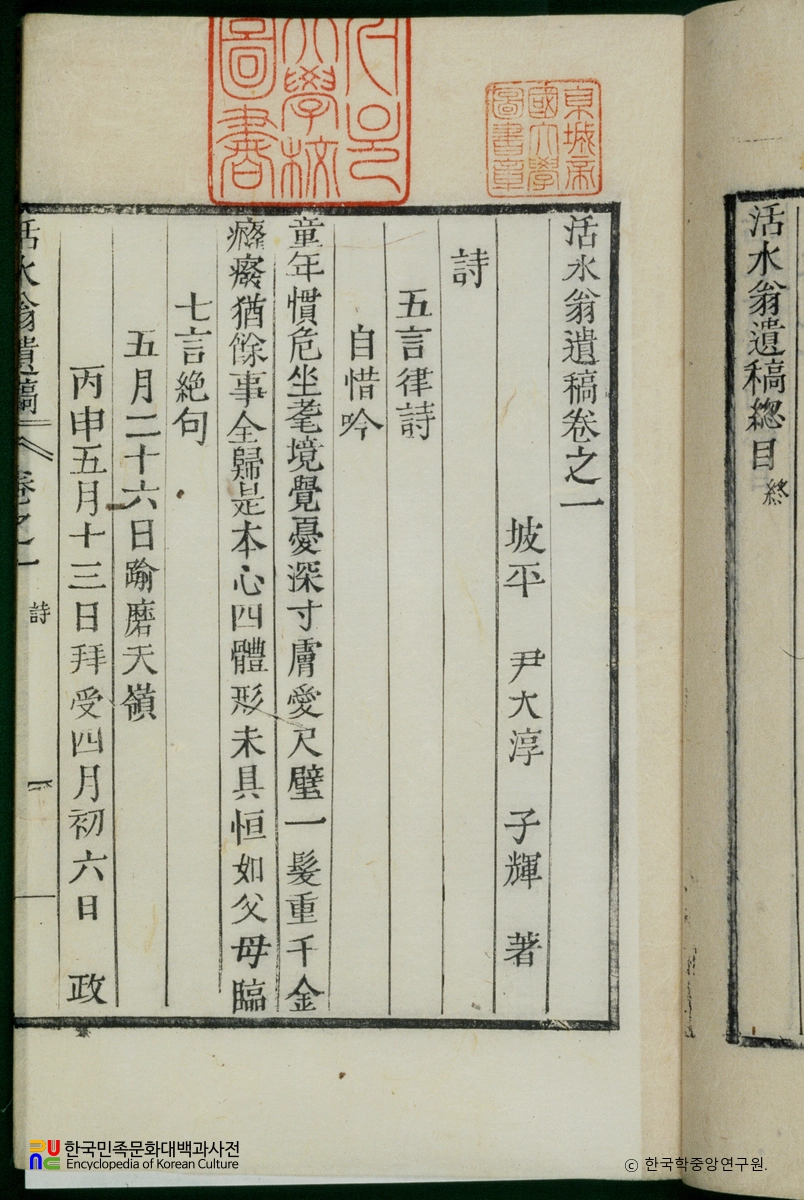 活水翁遺稿總目 終
京城帝
國大學
圖書章
大學校
圖書
活水翁遺稿卷之一
坡平 尹大淳 子輝 著
詩
五言律詩
自惜吟
童年慣危坐耄境覺憂深寸膚愛尺璧一髮重千金
癃癈猶餘事全歸是本心四體形未具恒如父母臨
七言絶句
五月二十六日踰磨天嶺
丙申五月十三日拜受四月初六日 政
活水翁遺稿 卷之一 詩 一
한국민족문화대백과사전
Encyclopedia of Korean Culture
ⓒ 한국학중앙연구원.